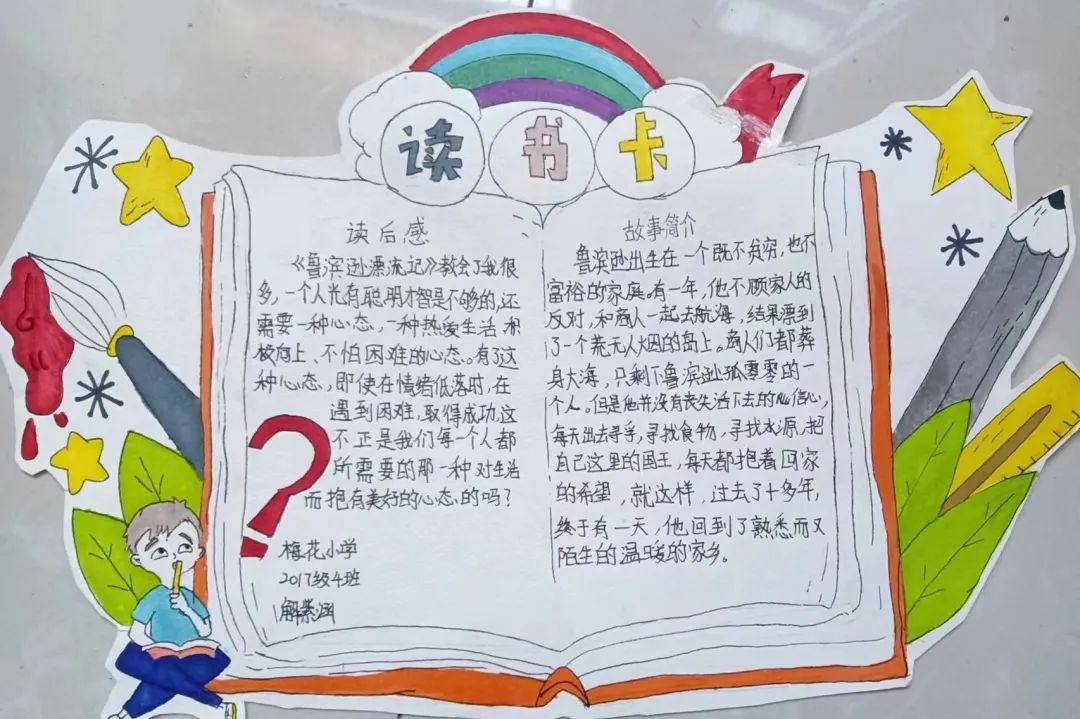 读书卡
读后感
《鲁滨逊漂流记》教会了我很
多,一个人光有聪明才智是不够的,还
需要一种心态,一种热爱生活、积
极向上、不怕困难的心态。有了这
种心态,即使在情绪低落时,在
遇到困难,取得成功,这
不正是我们每一个人都
所需要的那一种对生活
而抱有美好的心态的吗?
梅花小学
2017级4班
解紫涵
故事简介
鲁滨逊出生在一个既不贫穷,也不
富裕的家庭。有一年,他不顾家人的
反对,和商人一起去航海,结果漂到
了一个荒无人烟的岛上。商人们都葬
身大海,只剩下鲁滨逊孤零零的一
个人。但是他并没有丧失活下去的心信心,
每天出去寻手,寻找食物,寻找水源,把
自己这里的国王,每天都抱着回家
的希望,就这样,过去了十多年,
终于有一天,他回到了熟悉而又
陌生的温暖的家乡。